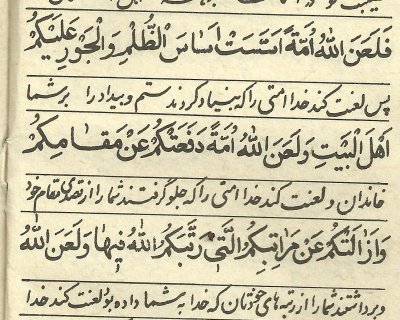 فَلَعَنَ اللّٰهُ اُمَّةً اَسَّسَتْ اَسَاسَ الظُّلْمِ وَالْجَوْرِ عَلَيْكُمْ
پس لعنت کند خدا امتی را که بنیاد کردند ستم و بیداد را بر شما
اَهْلَ الْبَيْتِ وَلَعَنَ اللّٰهُ اُمَّةً دَفَعَتْكُمْ عَنْ مَقَامِكُمْ
خاندان و لعنت کند خدا امتی را که جلو گرفتند شما را از تصدی مقام خود
وَاَزَالَتْكُمْ عَنْ مَرَاتِبِكُمُ الَّتِى رَتَّبَكُمُ اللّٰهُ فِيهَا وَلَعَنَ اللّٰهُ
و برداشتند شما را از رتبه‌های خودتان که خدا به شما داده بود لعنت کند خدا